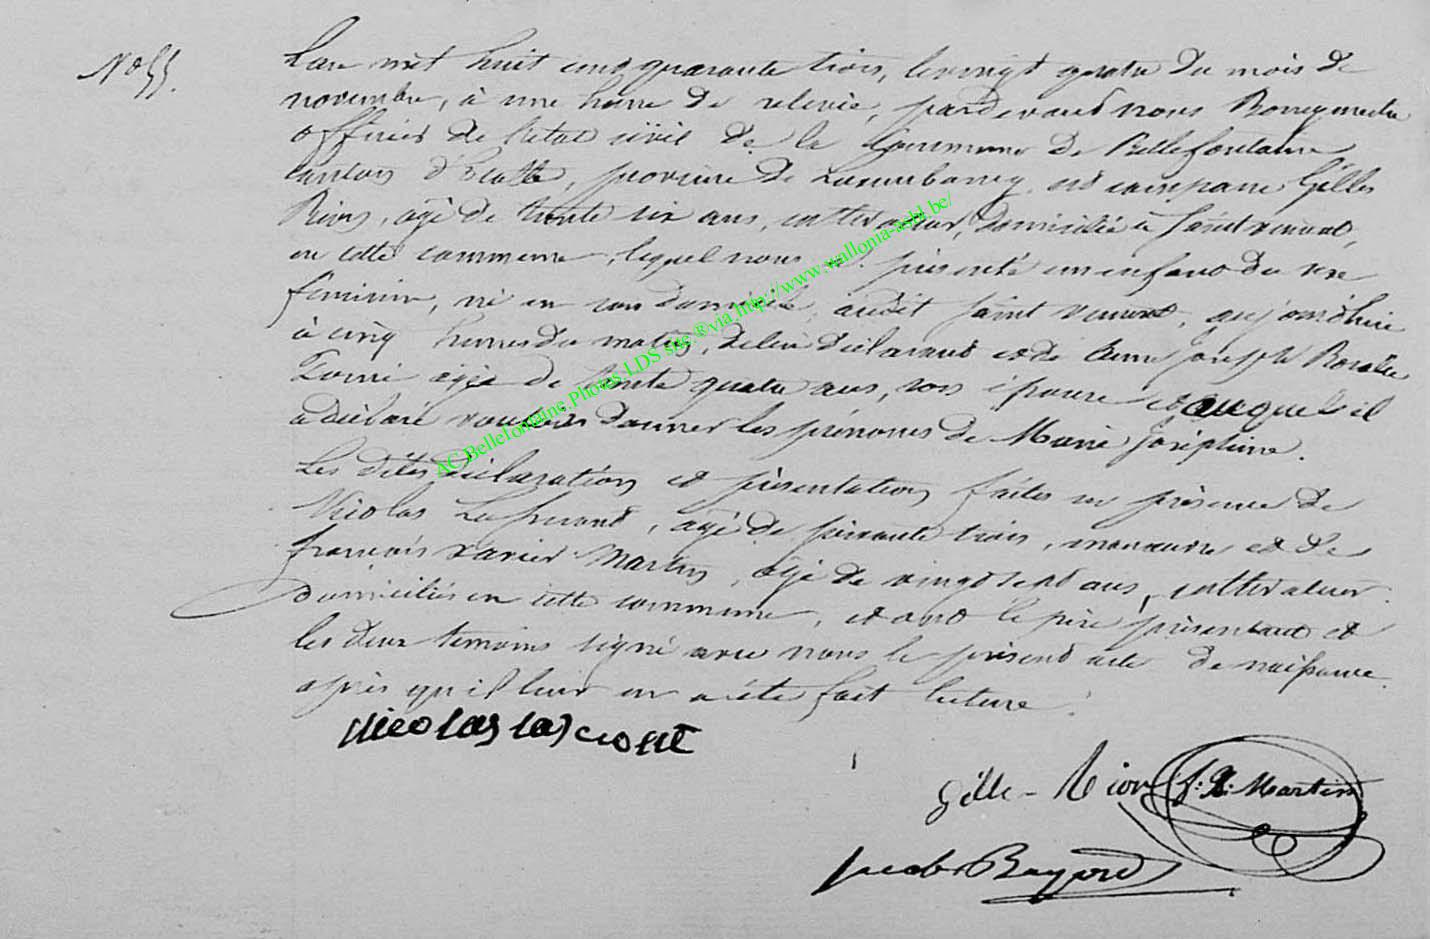 No 55.
L'an mil huit cent quarante trois, le vingt quatre du mois de
novembre, à une heure de relevée, pardevant nous Bourgmestre
officier de l'état civil de la Commune de Bellefontaine
canton d'Etalle, province de Luxembourg, est comparu Gilles
Rion, agé de trente six ans, cultivateur, domicilié à Saint vincent,
en cette commune, lequel nous a présenté un enfant du sexe
féminin, né en son domicile, audit Saint vincent, aujourd'hui
à cinq heures du matin, de lui déclarant et de Anne joseph Rosalie
agée de trente quatre ans, son épouse et auquel il
a déclaré vouloir donner les prénoms de Marie Joséphine.
Les dites déclaration et présentation faites en présence de
Nicolas, agé de soixante trois, manœuvre et de
françois xavier Martin, agé de vingt sept ans, cultivateur
domiciliés en cette commune, et ont le père présentant et
les deux temoins signé avec nous le présent acte de naissance
après qu'il leur en a été fait lecture.
nicolas
Gille Rion f: X: Martin
Jacob Bayard
AC Bellefontaine Photos LDS site ® via http://www.wallonia-asbl.be/